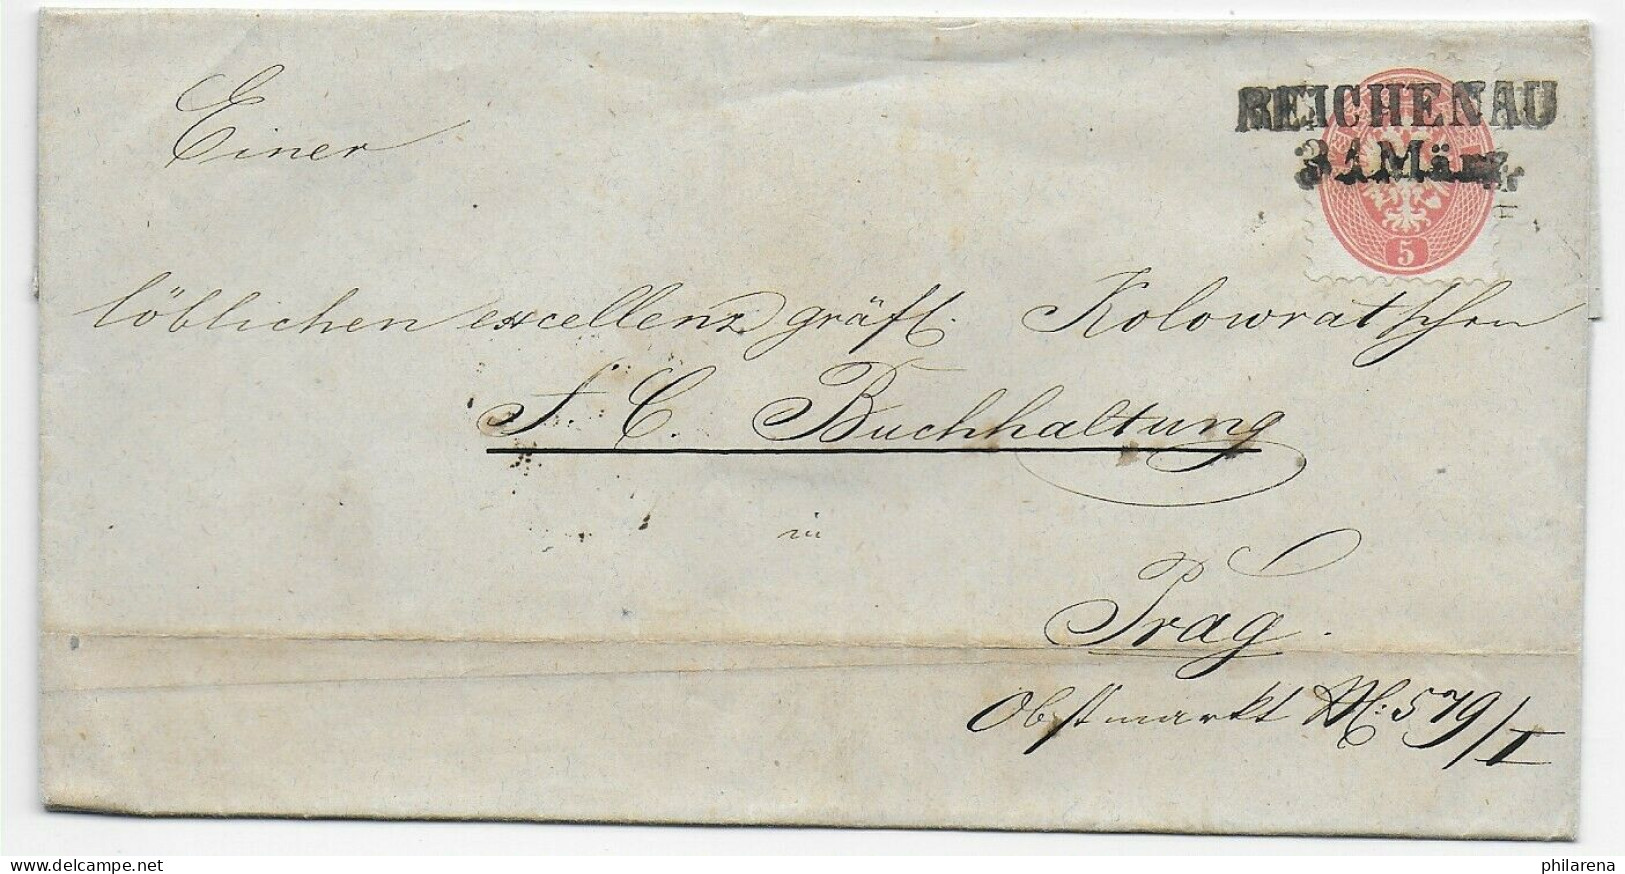 REICHENAU
31 März
5
Einer
löblichen excellenz gräfl. Kolowrat'schen
F. C. Buchhaltung
in
Prag.
Obstmarkt N: 579/I
delcampe.net
philarena